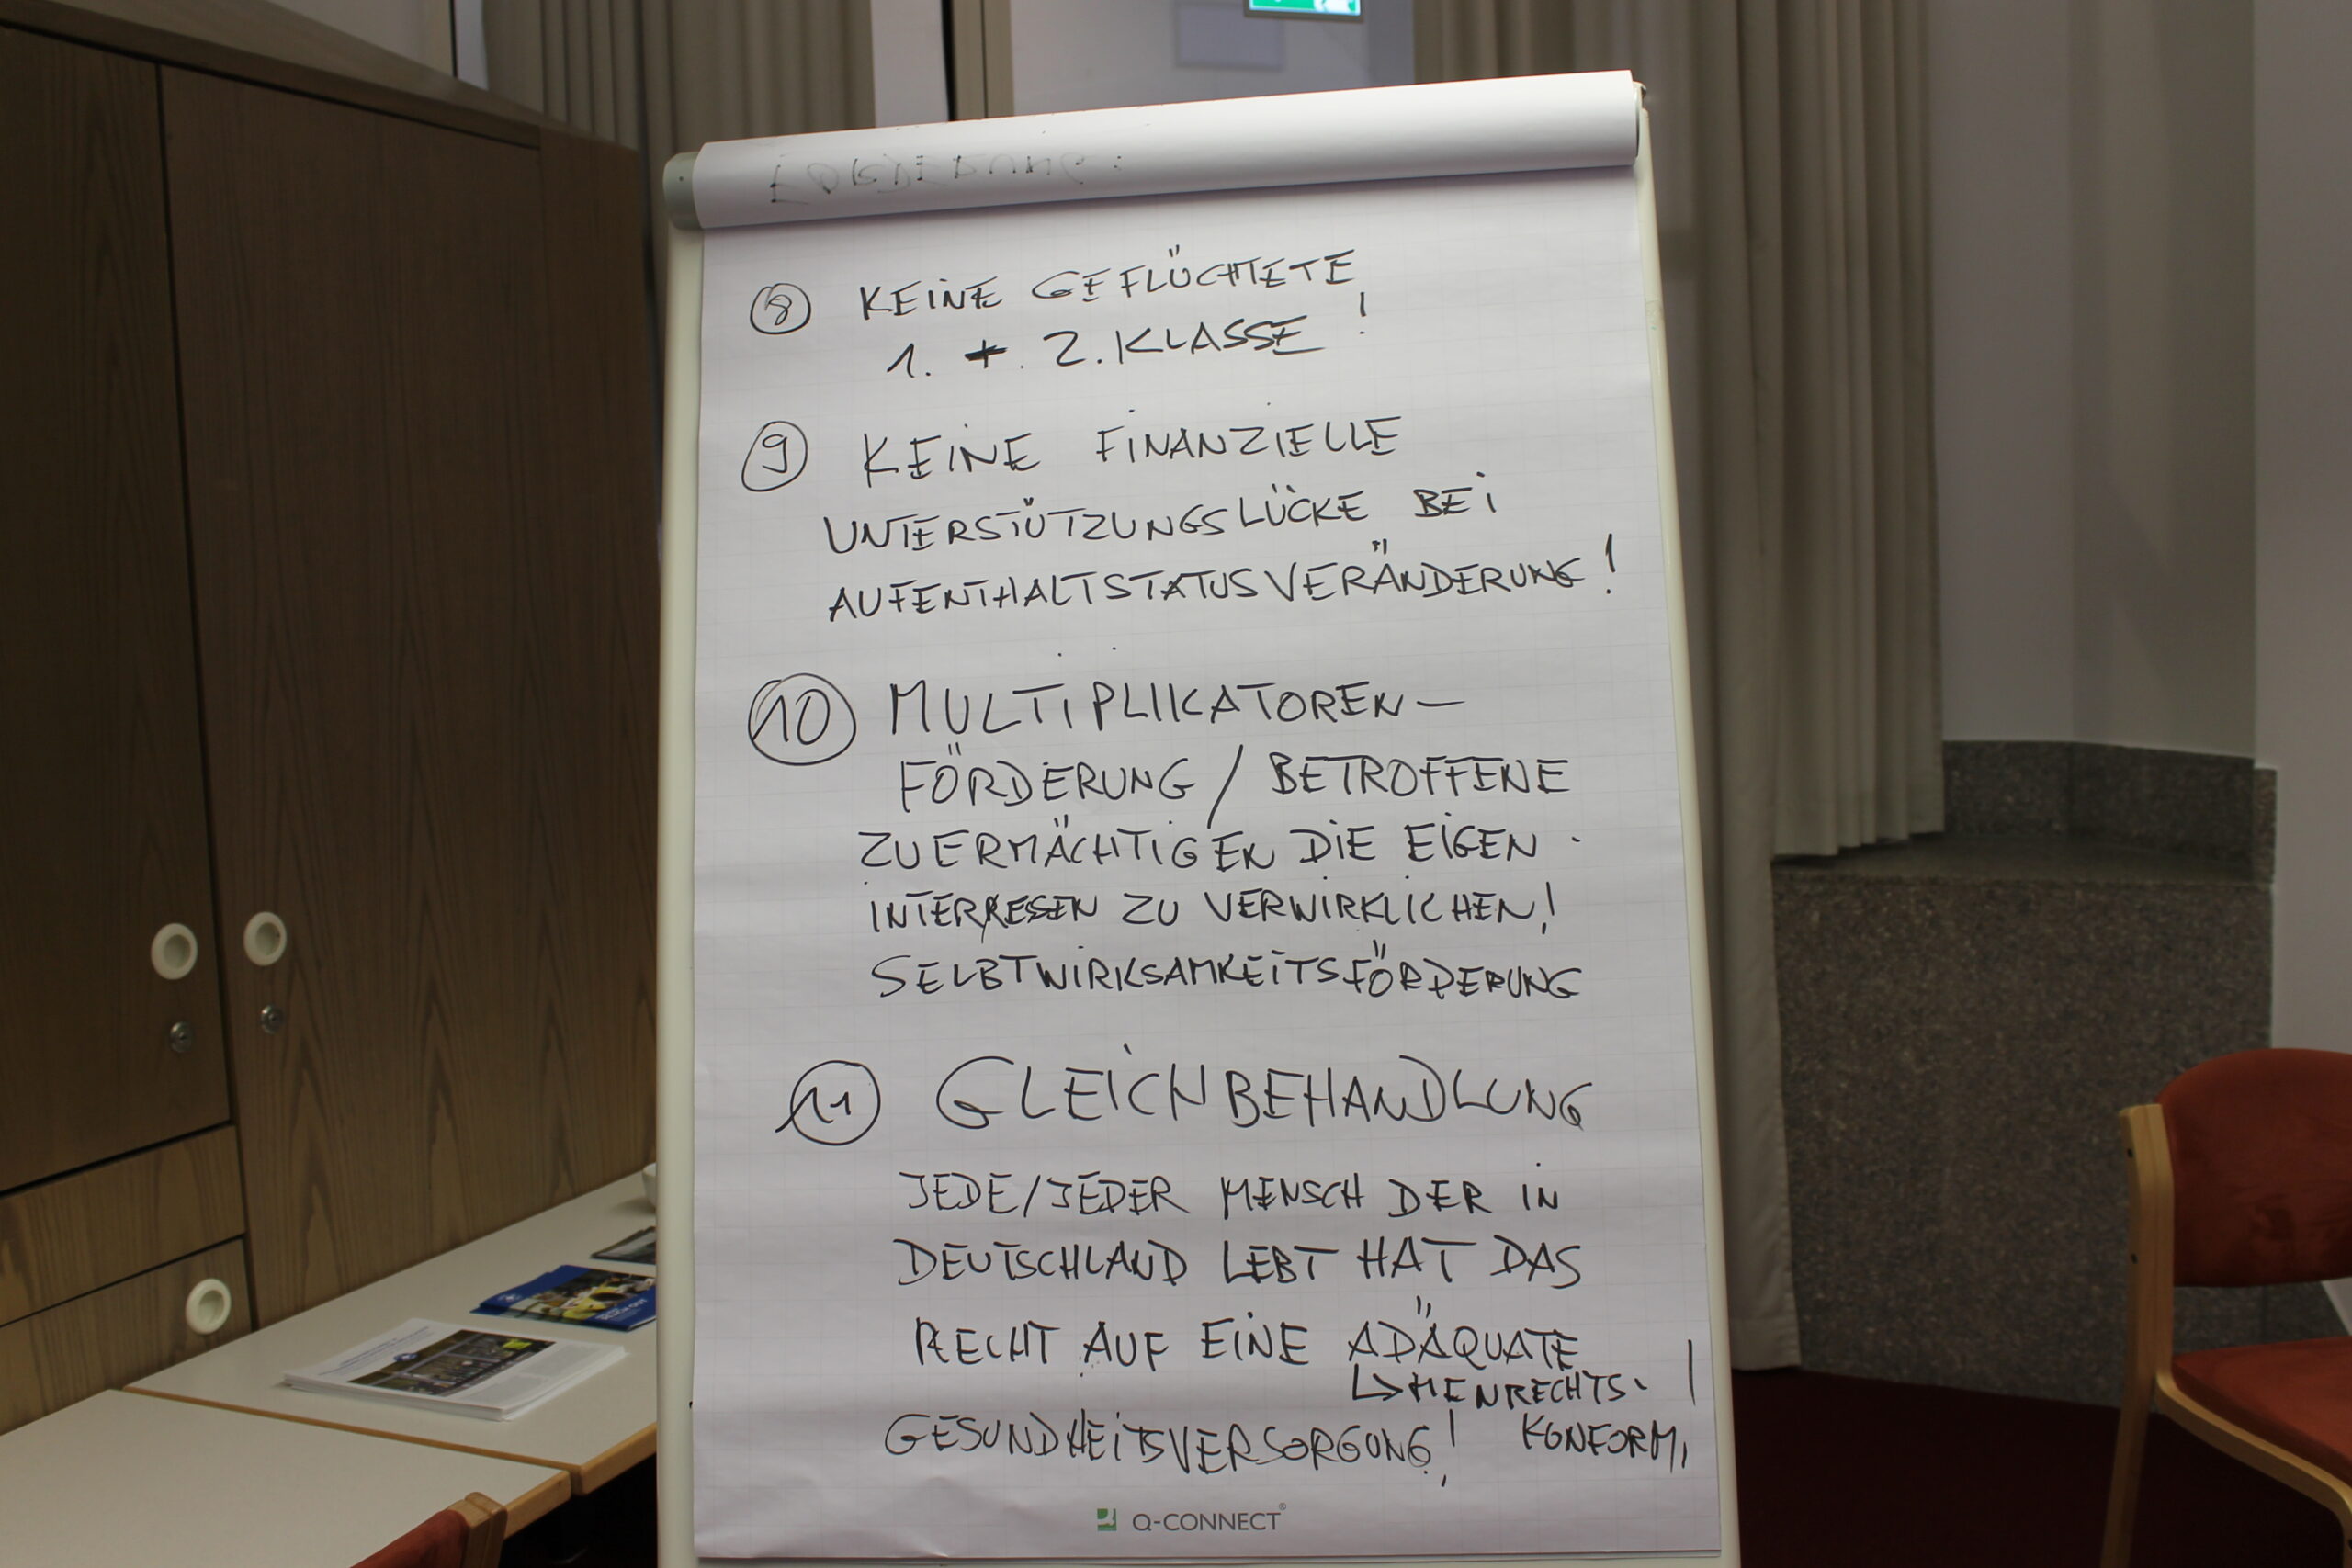 FORDERUNG:
⑧ KEINE GEFLÜCHTETE
1. + 2. KLASSE!
⑨ KEINE FINANZIELLE
UNTERSTÜTZUNGSLÜCKE BEI
AUFENTHALTSTATUSVERÄNDERUNG!
⑩ MULTIPLIKATOREN-
FÖRDERUNG / BETROFFENE
ZU ERMÄCHTIGEN DIE EIGEN
INTERRESEN ZU VERWIRKLICHEN!
SELBTWIRKSAMKEITSFÖRDERUNG
⑪ GLEICHBEHANDLUNG
JEDE/JEDER MENSCH DER IN
DEUTSCHLAND LEBT HAT DAS
RECHT AUF EINE ADÄQUATE
↳ MENRECHTS-
GESUNDHEITSVERSORGUNG! KONFORM!
Q-CONNECT®